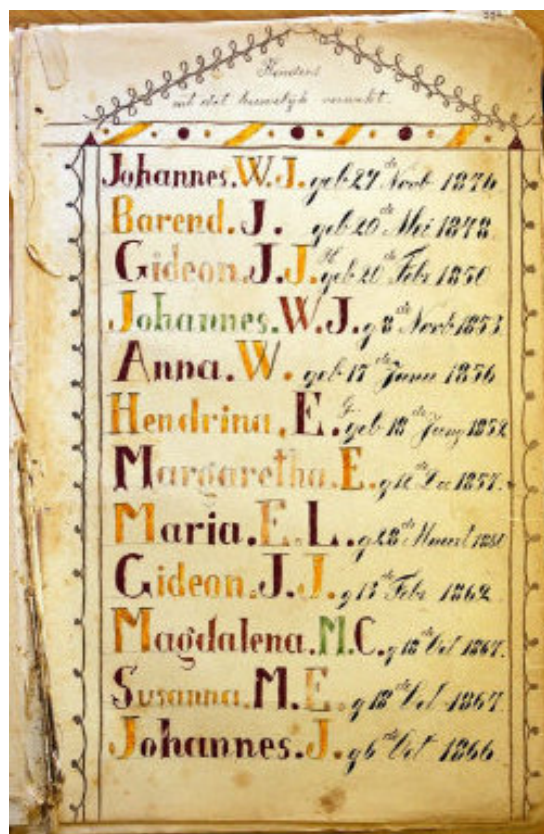 Kinders
uit dat huwelijk verwekt.
Johannes. W. J. geb 27 de Novb 1876
Barend. J. geb 20 de Mei 1878
Gideon. J. J. geb 20 de Febr 1850
Johannes. W. J. g 8 de Novb 1853
Anna. W. geb 15 de Junu 1856
Hendrina. E. geb 18 de 1852
Margaretha. E. g 12 de Dec 1857.
Maria. E. L. g 28 de Maart
Gideon. J. J. g 13 de Febr 1862
Magdalena. M. C. g 18 de Oct 1867.
Susanna. M. E. g 18 de Oct 1867
Johannes. J. g 6 de Oct 1866